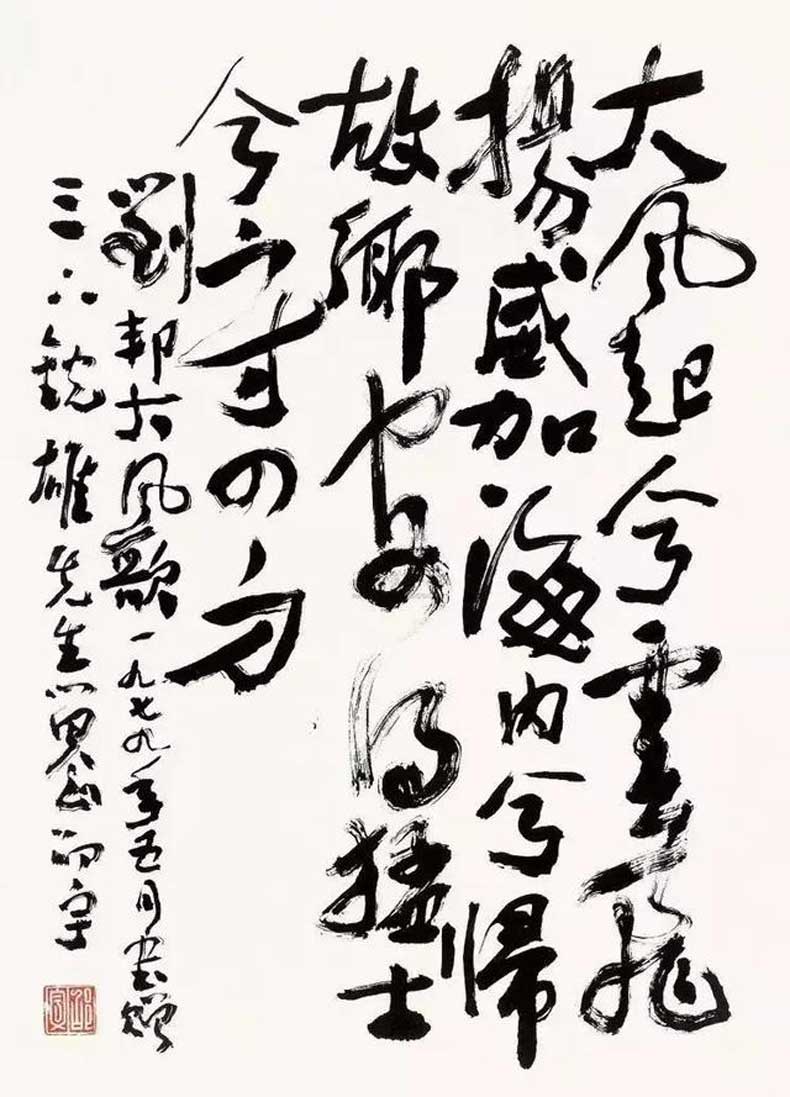 大風起兮雲飛
揚威加海内兮歸
故鄉安得猛士
兮守四方
劉邦大風歌一九七九年五月書贈
雄先生邵宇
邵宇